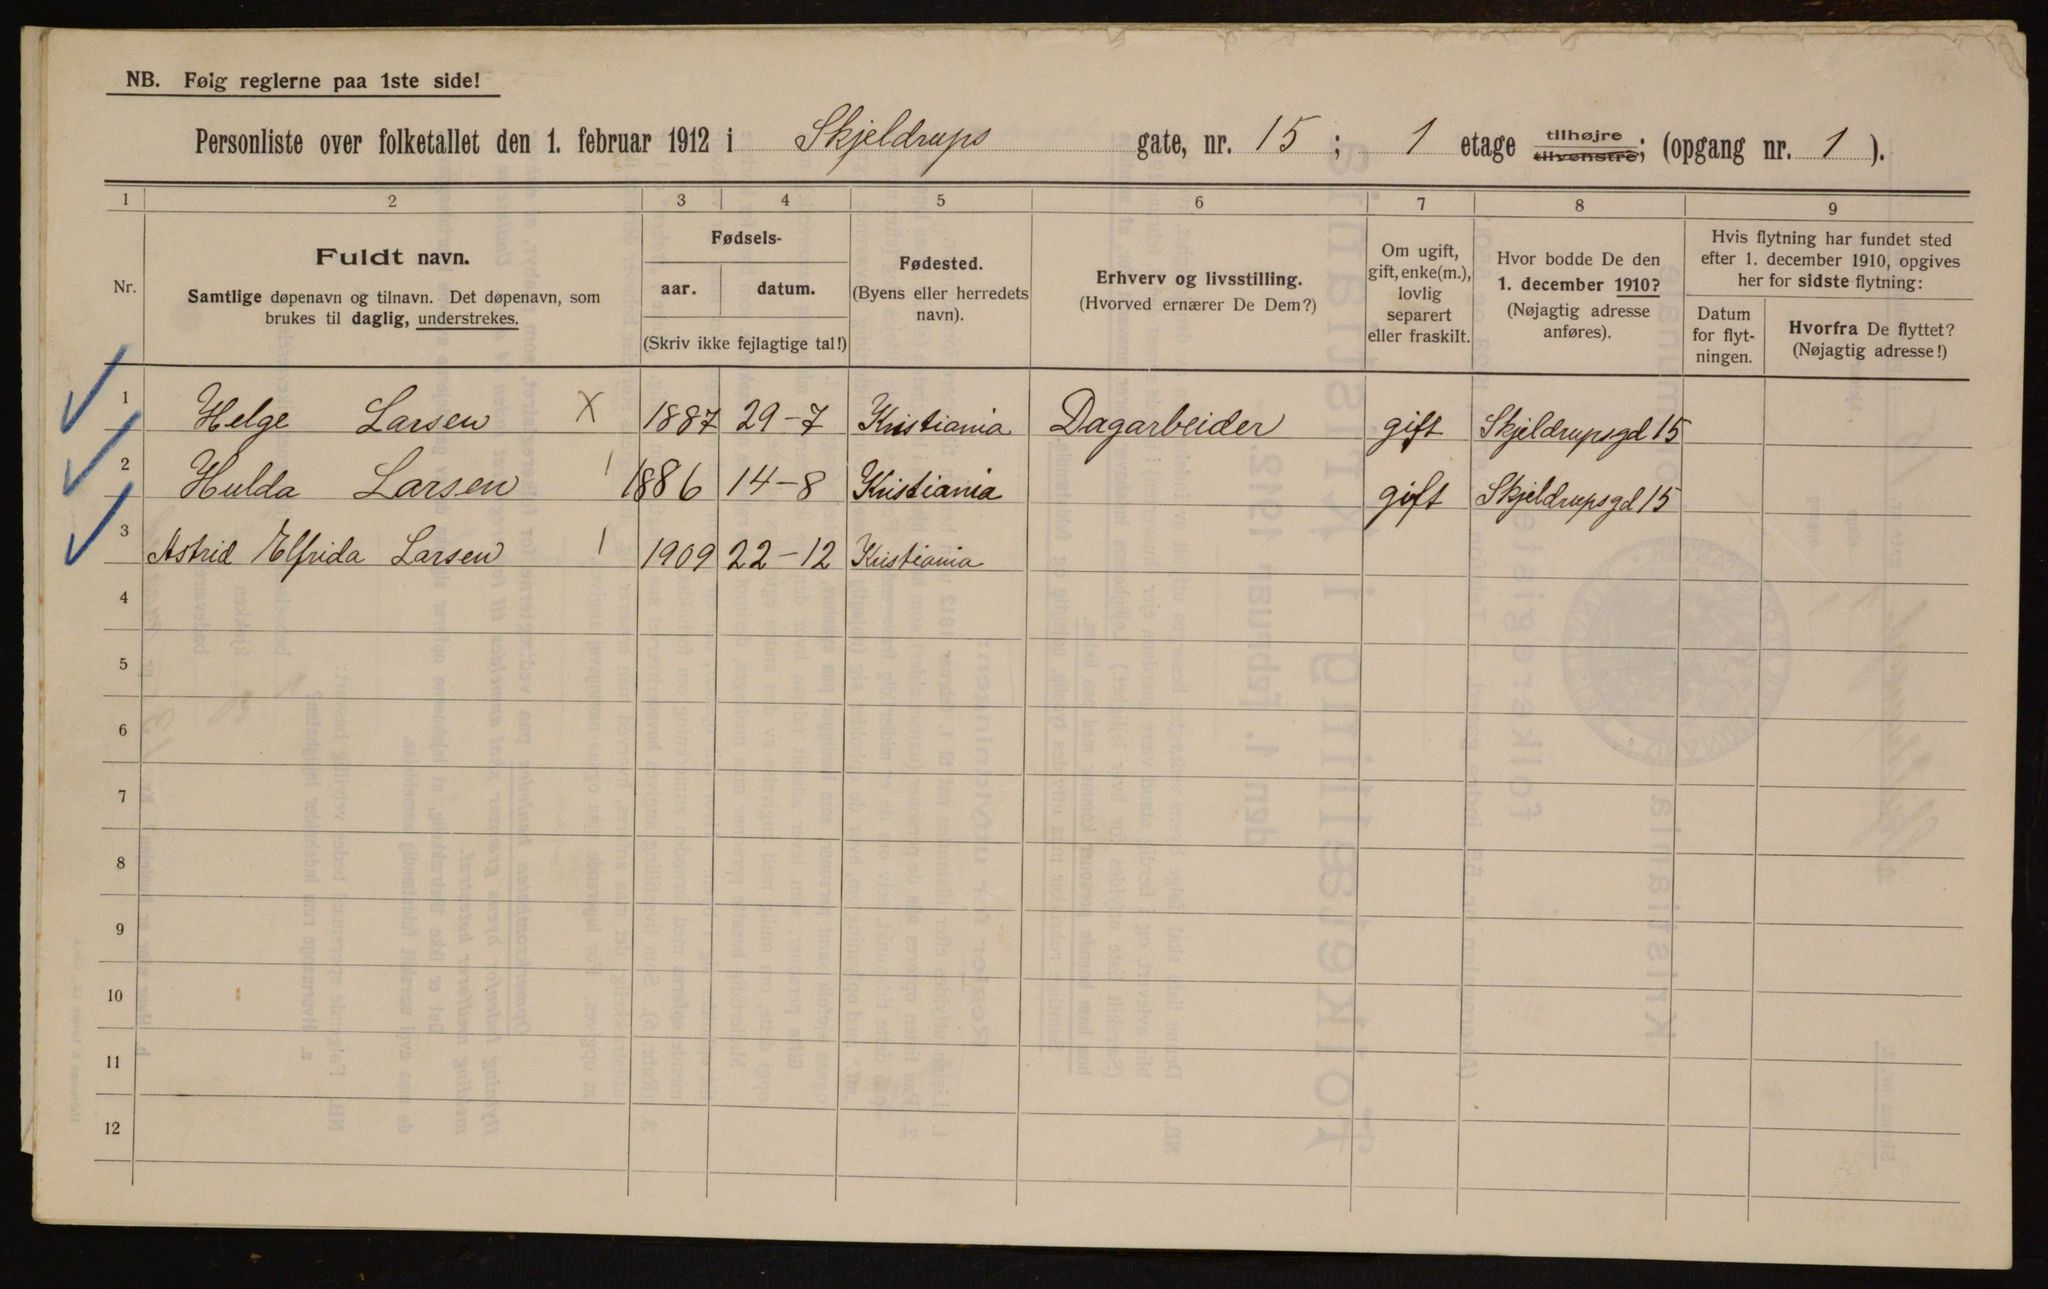 NB. Følg reglerne paa 1ste side!
Personliste over folketallet den 1. februar 1912 i Skjeldrups gate, nr. 15 ; 1 etage tilhøjre tilvenstre; (opgang nr. 1 ).
1 2 3 4 5 6 7 8 9
Nr.
Fuldt navn.
Samtlige døpenavn og tilnavn. Det døpenavn, som
brukes til daglig, understrekes.
Fødsels-
aar. datum.
(Skriv ikke fejlagtige tal!)
Fødested.
(Byens eller herredets
navn).
Erhverv og livsstilling.
(Hvorved ernærer De Dem?)
Om ugift,
gift, enke(m.),
lovlig
separert
eller fraskilt.
Hvor bodde De den
1. december 1910?
(Nøjagtig adresse
anføres).
Hvis flytning har fundet sted
efter 1. december 1910, opgives
her for sidste flytning:
Datum
for flyt-
ningen.
Hvorfra De flyttet?
(Nøjagtig adresse!)
1 Helge Larsen X 1887 29-7 Kristiania Dagarbeider gift Skjeldrupsgd 15
2 Hulda Larsen 1 1886 14-8 Kristiania gift Skjeldrupsgd 15
3 Astrid Elfrida Larsen 1 1909 22-12 Kristiania
4
5
6
7
8
9
10
11
12